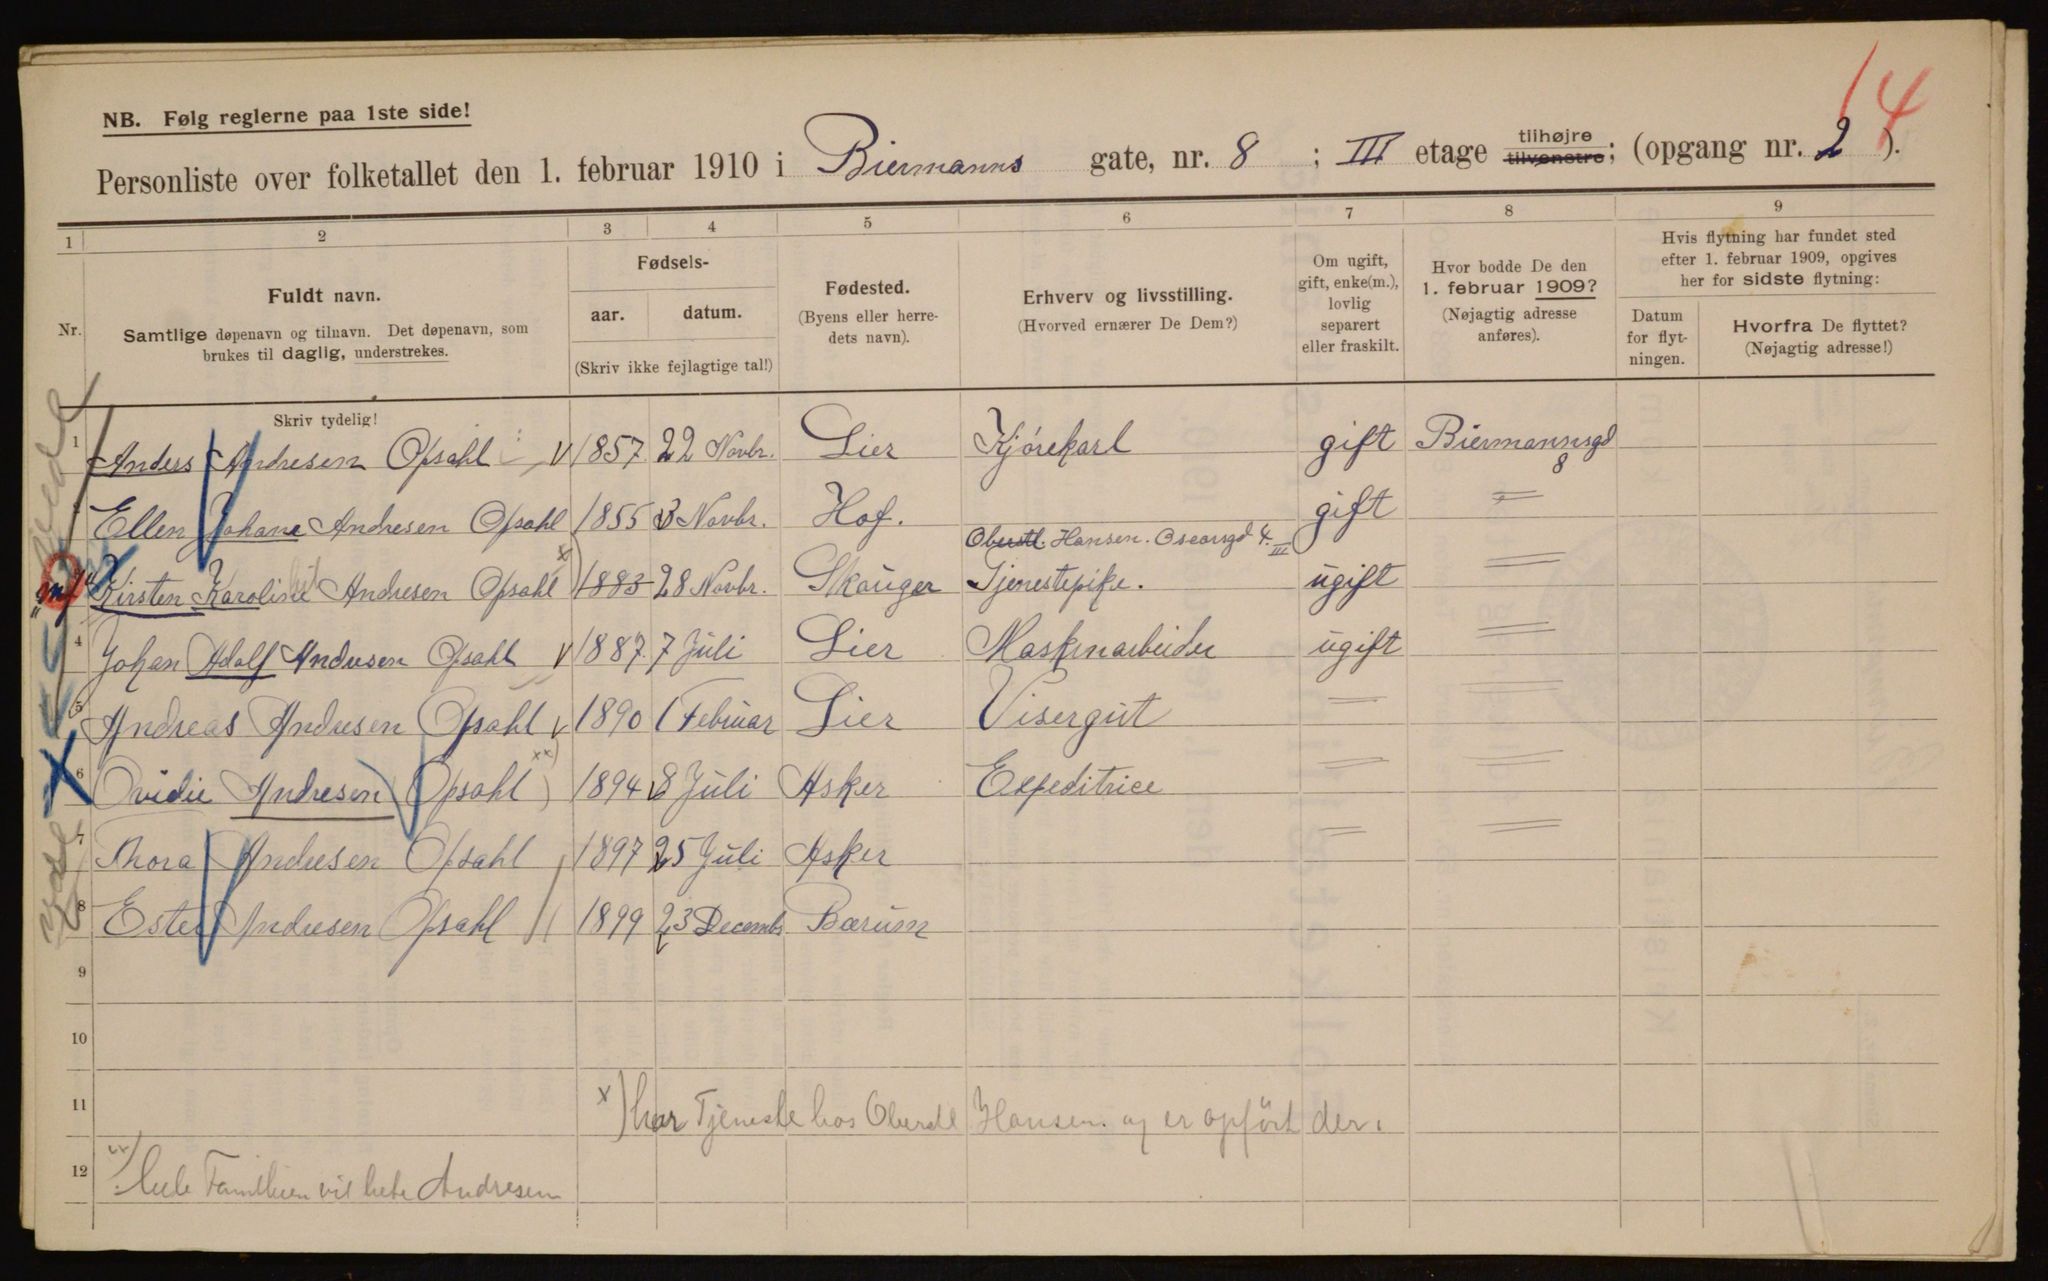 14
NB. Følg reglerne paa 1ste side!
Personliste over folketallet den 1. februar 1910 i Biermanns gate, nr. 8 ; III etage tilhøjre tilvenstre; (opgang nr. 2 ).
1 2 3 4 5 6 7 8 9
Nr.
Fuldt navn.
Samtlige døpenavn og tilnavn. Det døpenavn, som
brukes til daglig, understrekes.
Fødsels-
aar. datum.
(Skriv ikke fejlagtige tal!)
Fødested.
(Byens eller herre-
dets navn).
Erhverv og livsstilling.
(Hvorved ernærer De Dem?)
Om ugift,
gift, enke(m.),
lovlig
separert
eller fraskilt.
Hvor bodde De den
1. februar 1909?
(Nøjagtig adresse
anføres).
Hvis flytning har fundet sted
efter 1. februar 1909, opgives
her for sidste flytning:
Datum
for flyt-
ningen.
Hvorfra De flyttet?
(Nøjagtig adresse!)
Skriv tydelig!
1 Anders Andresen Opsahl 1857 22 Novbr. Lier Kjørekarl gift Biermannsgd 8
Ellen Johane Andresen Opsahl 1855 3 Novbr. Hof. gift =
Oberstl. Hansen. Oscarsgd 4. III
Kirsten Karoline Andresen Opsahl x) 1883 28 Novbr. Skauger Tjenestepike. ugift =
4 Johan Adolf Andresen Opsahl 1887 7 Juli Lier Maskinarbeider ugift =
5 Andreas Andresen Opsahl 1890 1 Februar Lier Visergut = =
6 Ovidie Andresen (Opsahl) xx) 1894 8 Juli Asker Expeditrice = =
7 Thora Andresen Opsahl 1897 25 Juli Asker = =
8 Ester Andresen Opsahl 1899 23 Decembr Bærum
9
10
11 x) har Tjeneste hos Oberstl Hansen og er opført der.
12 xx) hele Familien vil hete Andresen